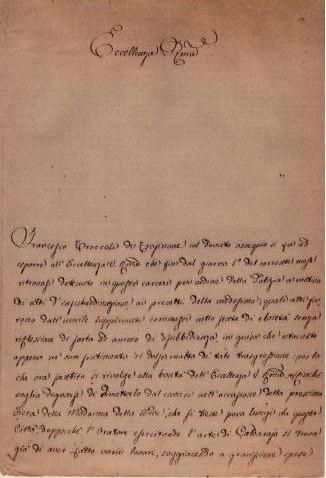 Eccellenza Rma
Francesco Broccoli di Frosinone col dovuto ossequio si fa ad
esporre all'Eccellenza V. Rma che fin dal giorno 1° del corrente mese
ritrovasi detenuto in queste carceri per ordine della Polizia a motivo
di atto d'insubordinazione ai precetti della medesima, quali atti fu
rono dall'umile supplicante commessi nello stato di ebrietà senza
riflessione di sorta ad animo di in guisa che ritornato
appena in sua si di tale trasgressione, per lo
che ora si rivolge alla bontà dell'Eccellenza V. Rma affinché
voglia degnarsi di dal carcere nell'occasione della prossima
fiera della Madonna della Neve, che si tiene poco lungi da questa
Città dapoiché l'Oratore esercitando l'arte di Caldararo si trova
già di aver fatto varii lavori, soggiacendo a gravissime spese